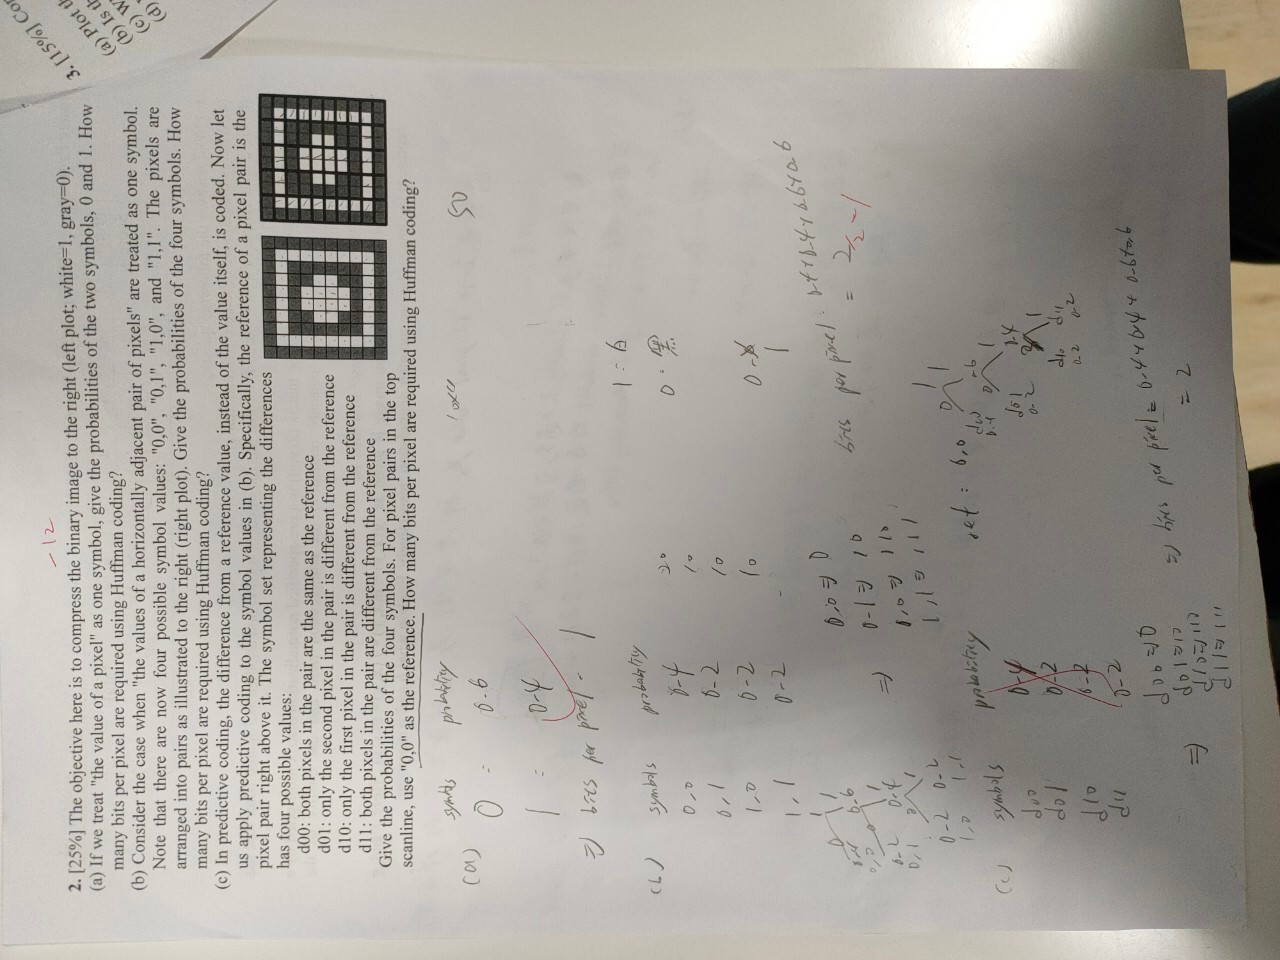 -12
2. [25%] The objective here is to compress the binary image to the right (left plot; white=1, gray=0).
(a) If we treat "the value of a pixel" as one symbol, give the probabilities of the two symbols, 0 and 1. How
many bits per pixel are required using Huffman coding?
(b) Consider the case when "the values of a horizontally adjacent pair of pixels" are treated as one symbol.
Note that there are now four possible symbol values: "0,0", "0,1", "1,0", and "1,1". The pixels are
arranged into pairs as illustrated to the right (right plot). Give the probabilities of the four symbols. How
many bits per pixel are required using Huffman coding?
(c) In predictive coding, the difference from a reference value, instead of the value itself, is coded. Now let
us apply predictive coding to the symbol values in (b). Specifically, the reference of a pixel pair is the
pixel pair right above it. The symbol set representing the differences
has four possible values:
d00: both pixels in the pair are the same as the reference
d01: only the second pixel in the pair is different from the reference
d10: only the first pixel in the pair is different from the reference
d11: both pixels in the pair are different from the reference
Give the probabilities of the four symbols. For pixel pairs in the top
scanline, use "0,0" as the reference. How many bits per pixel are required using Huffman coding?
3. [15%] Con
(a) Plot th
(b) Is th
(c) W
(d)
(a) symbols probability
50
0 : 0.6
1 : 0.4
⇒ bits per pixel = 1
(b) symbols probability
0,0 0.4 20
0,1 0.2 10
1,0 0.2 10
1,1 0.2 10
0 : 黑
0,0 ⇒ 0
0,1 ⇒ 10
1,0 ⇒ 110
1,1 ⇒ 111
⇒
bits per pixel = 0.4+0.4+0.6+0.6
= 2
/2 = 1
0 1
0.4 0.6
0,0 0 1
0.2 0.4
0,1 0 1
0.2 0.2
1,0 1,1
(c) symbols probability
ref : 0,0
d00 0.4
d01 0.2
d10 0.2
d11 0.2
0 1
d00 0.6
0.4 0 1
d01 0.4
0.2 1
d10 d11
0.2 0.2
d00 ⇒ 0
d01 ⇒ 10
⇒ d10 ⇒ 110
d11 ⇒ 111
⇒ bits per pixel = 0.4+0.4+0.6+0.6
= 2